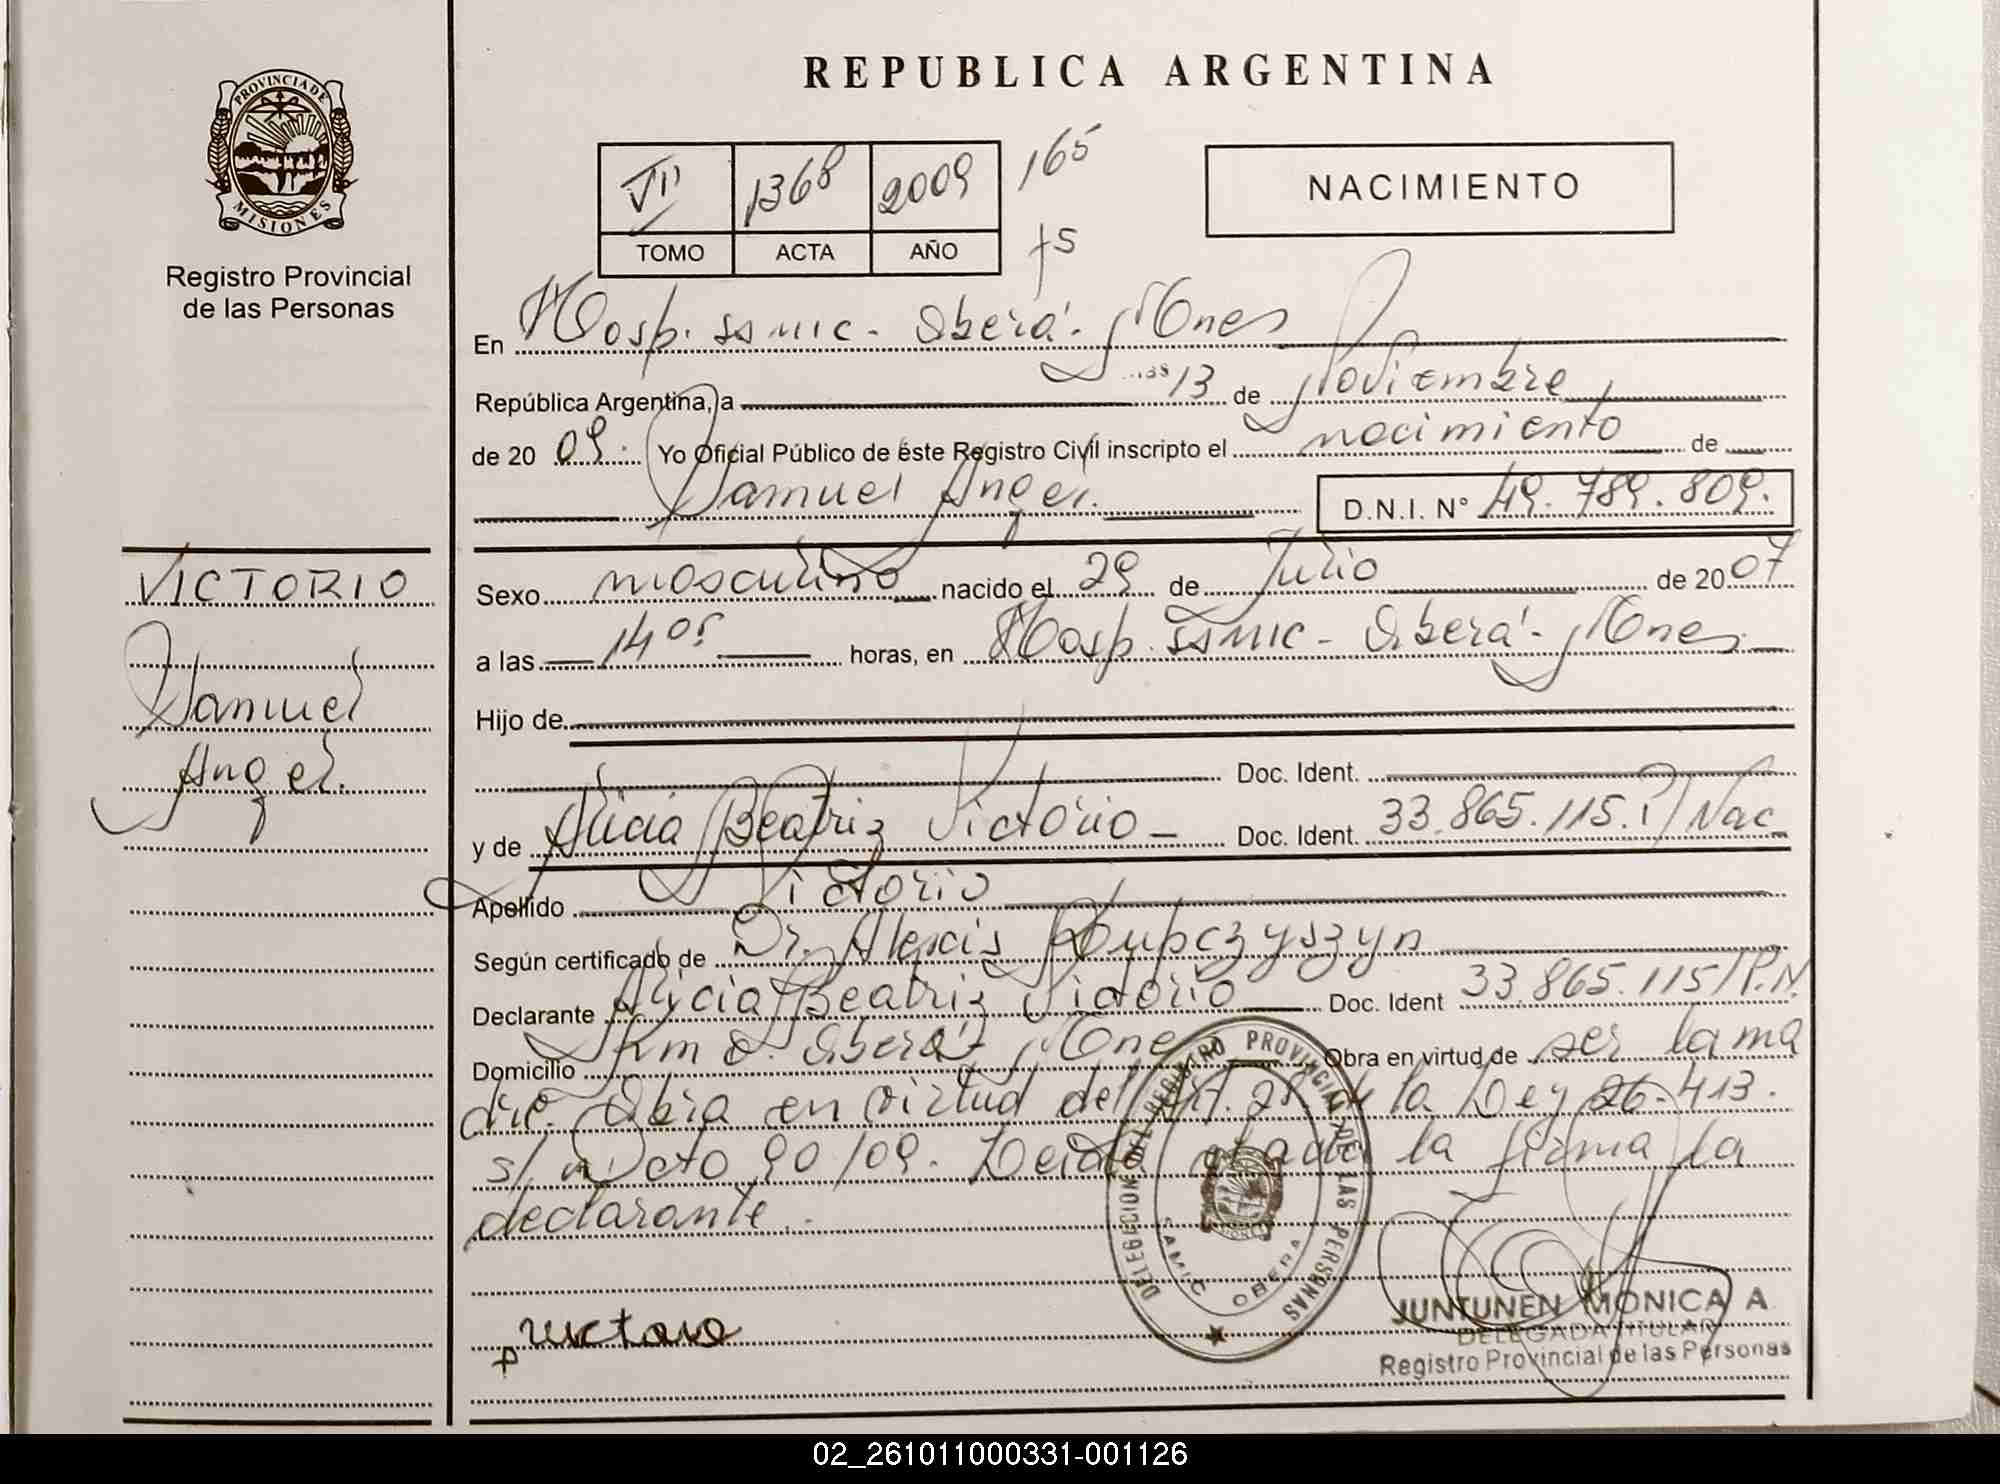 PROVINCIA DE
MISIONES
Registro Provincial
de las Personas
VICTORIO
Samuel
Angel.
REPUBLICA ARGENTINA
VII 1368 2009 165
TOMO ACTA AÑO
NACIMIENTO
En Hosp. SAMIC - Oberá - Mnes
República Argentina, a 13 de Noviembre
de 20 09. Yo Oficial Público de éste Registro Civil inscripto el nacimiento de
Samuel Angel. D.N.I. N° 49.789.809.
Sexo masculino nacido el 29 de Julio de 20 07
a las 14 05 horas, en Hosp. SAMIC - Oberá - Mnes
Hijo de
Doc. Ident.
y de Alicia Beatriz Victorio Doc. Ident. 33.865.115. P/Nac
Apellido Victorio
Según certificado de Dr. Alexis Kupczyszyn
Declarante Alicia Beatriz Victorio Doc. Ident 33.865.115/P.N.
Domicilio Km 8. Oberá Mnes Obra en virtud de ser la ma
dre. Obra en virtud del Art. 28 de la Ley 26.413.
s/ Dcto 90/09. Leída el acta la firma la
declarante.
DELEGACION DEL REGISTRO PROVINCIAL DE LAS PERSONAS
SAMIC OBERA
victorio
JUNTUNEN MONICA A
DELEGADA TITULAR
Registro Provincial de las Personas
02_261011000331-001126